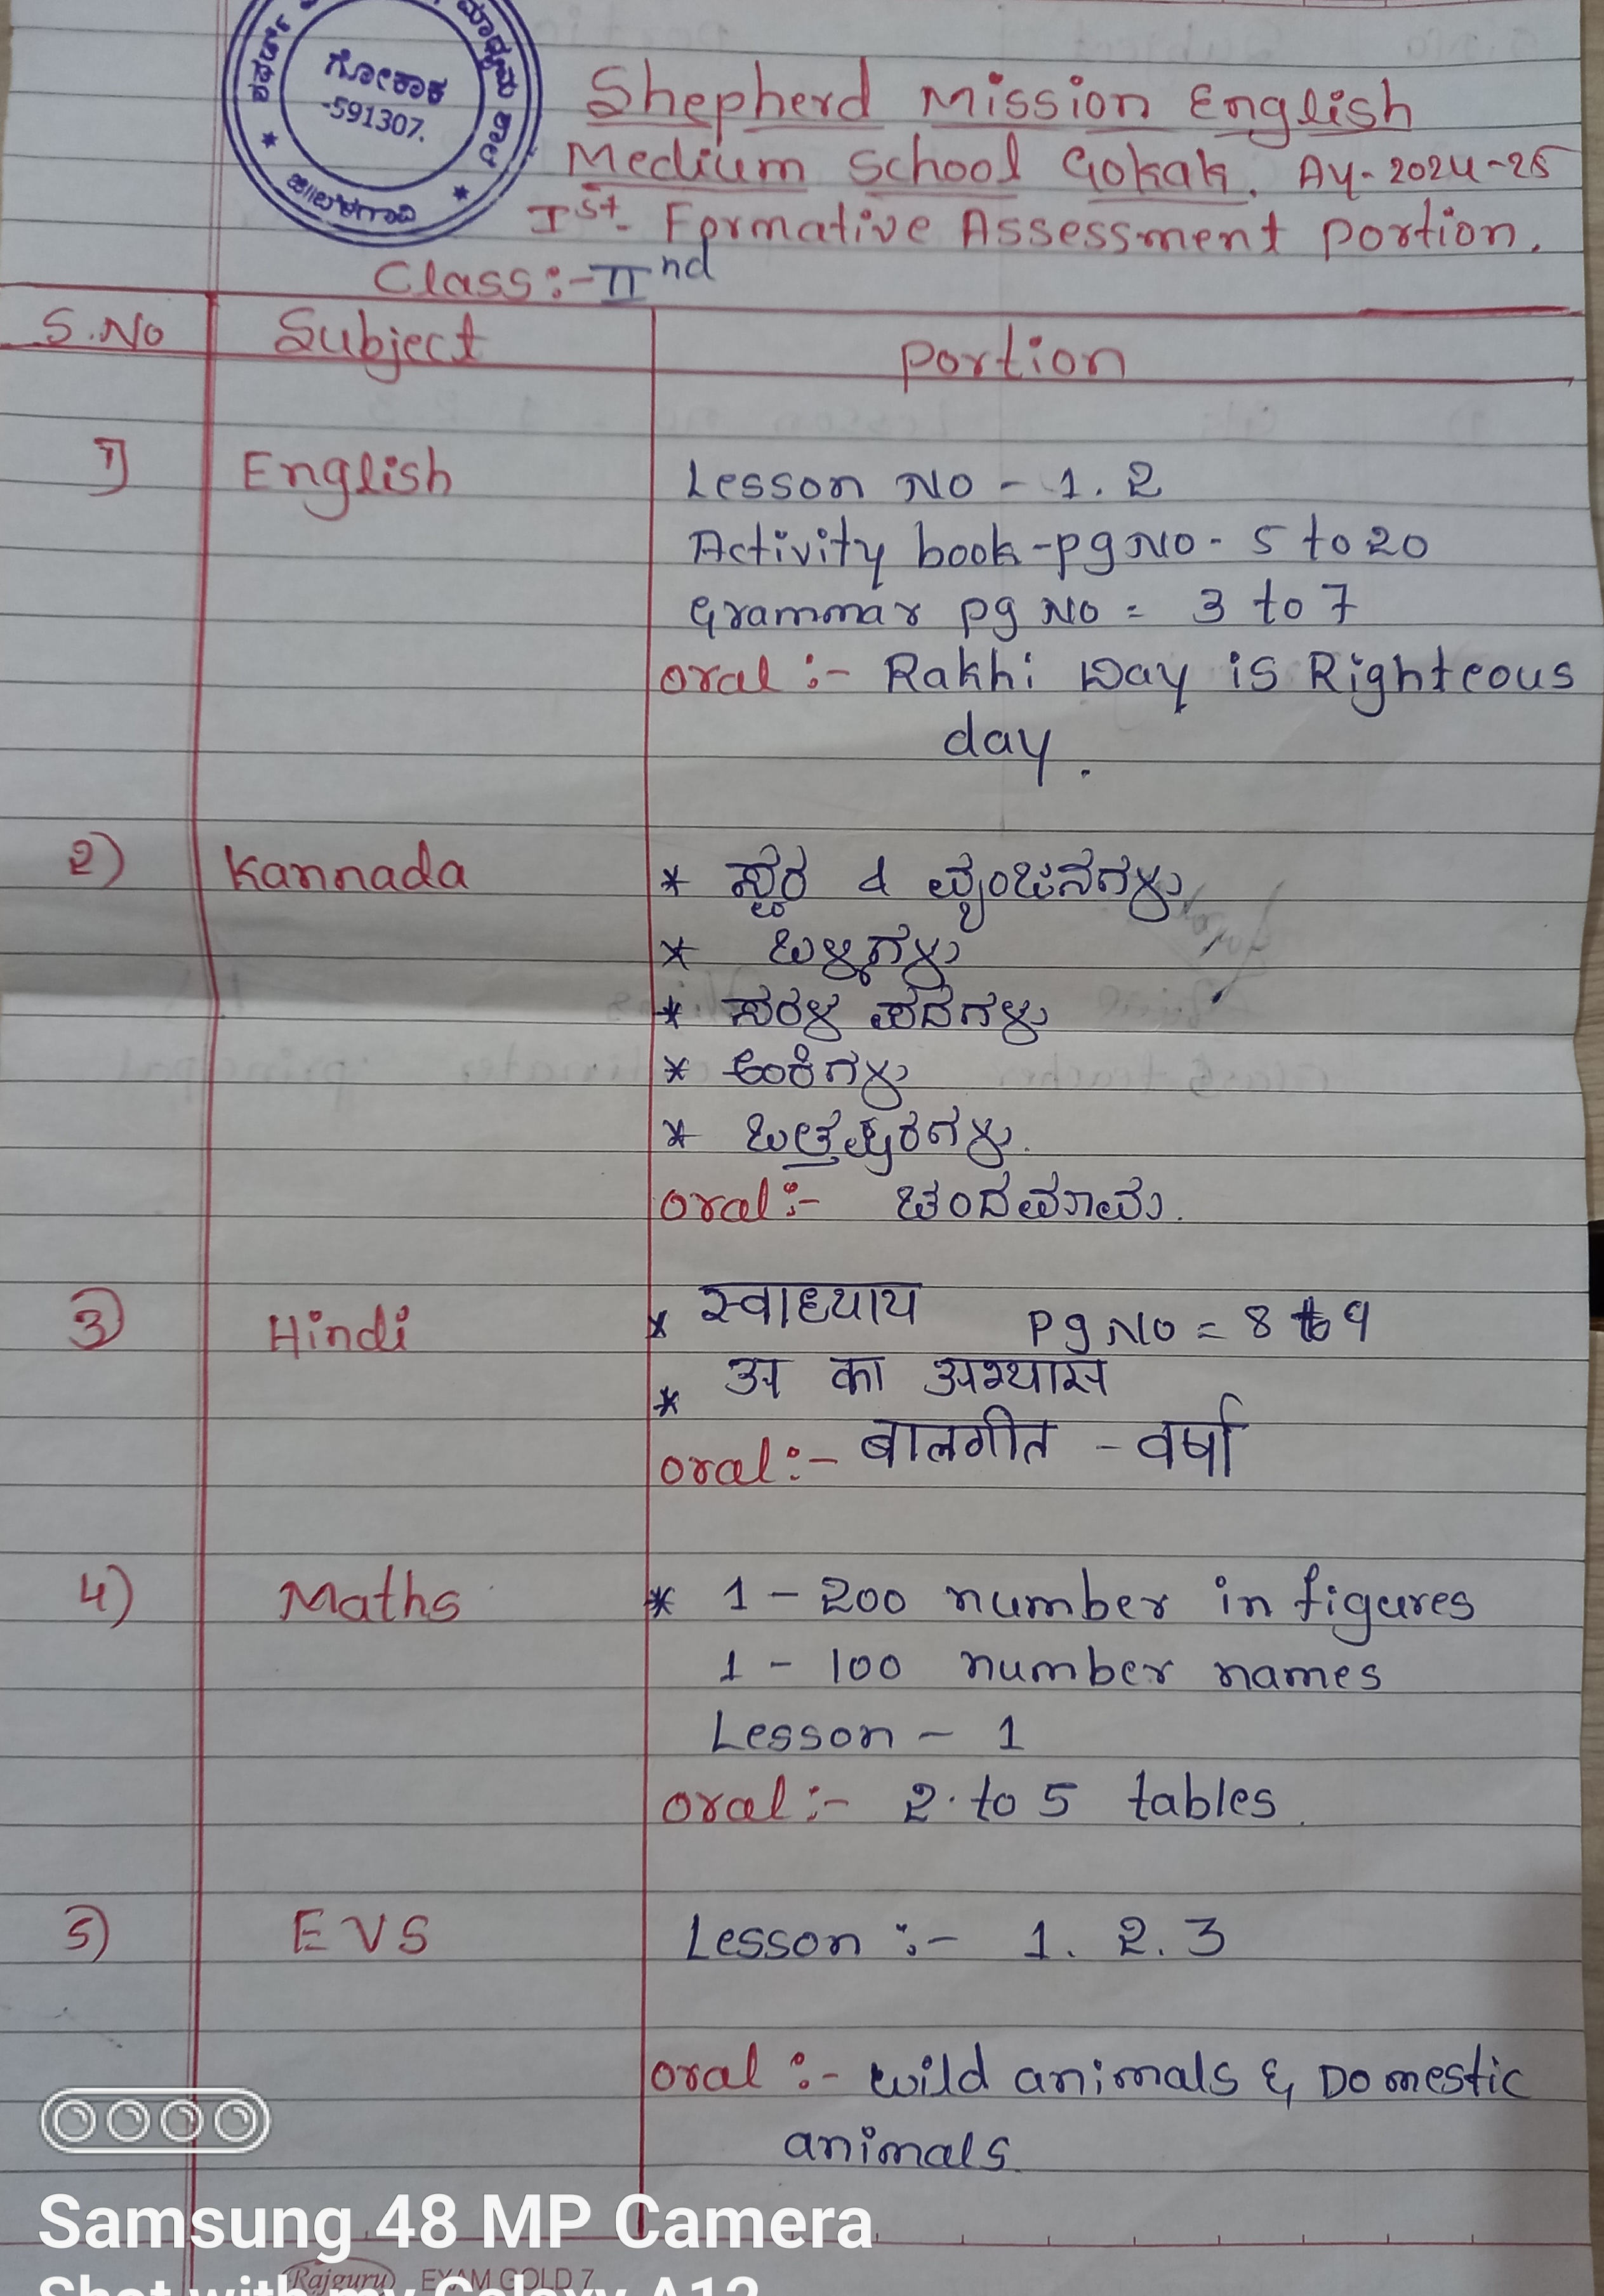 ಗೋಕಾಕ
-591307.
Shepherd Mission English
Medium School Gokak. AY-2024-25
Ist. Formative Assessment portion.
Class:- IInd
S.No Subject portion
1) English Lesson No - 1. 2
Activity book - pg No - 5 to 20
Grammar pg No = 3 to 7
oral :- Rakhi Day is Righteous
day.
2) Kannada * ಸ್ವರ & ವ್ಯಂಜನಗಳು
* ಬಳ್ಳಿಗಳು
* ಸರಳ ಪದಗಳು
* ಅಂಕಿಗಳು
*
oral :- ಚಂದಮಾಮ.
3) Hindi * स्वाध्याय Pg No = 8 to 9
* अ का अभ्यास
oral :- बालगीत - वर्षा
4) Maths * 1 - 200 number in figures
1 - 100 number names
Lesson - 1
oral :- 2 to 5 tables.
5) EVS Lesson :- 1. 2. 3
oral :- wild animals & Domestic
animals
Samsung 48 MP Camera
Shot with my Galaxy A12
Rajguru EXAM GOLD 7